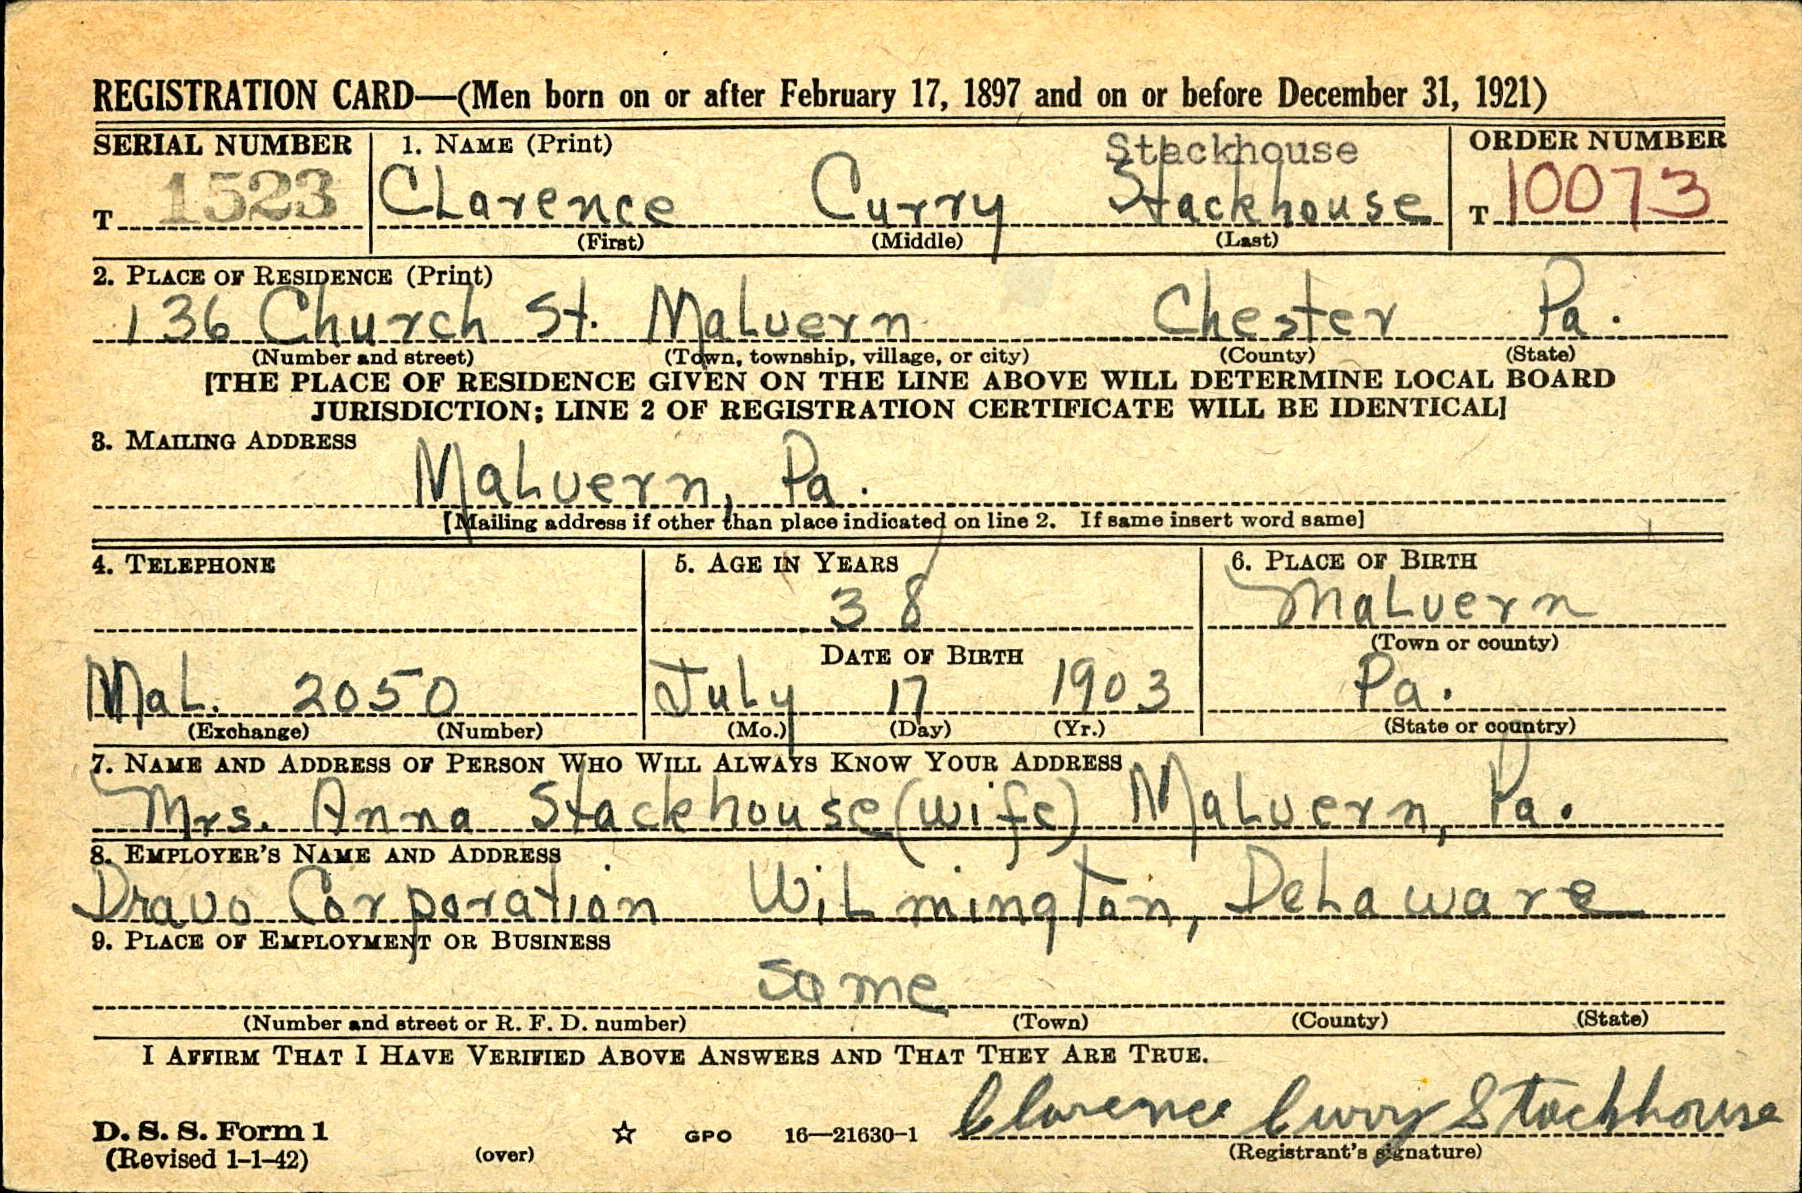 REGISTRATION CARD—(Men born on or after February 17, 1897 and on or before December 31, 1921)
SERIAL NUMBER 1. NAME (Print) Stackhouse ORDER NUMBER
T 1523 Clarence Curry Stackhouse T 10073
(First) (Middle) (Last)
2. PLACE OF RESIDENCE (Print)
136 Church St. Malvern Chester Pa.
(Number and street) (Town, township, village, or city) (County) (State)
[THE PLACE OF RESIDENCE GIVEN ON THE LINE ABOVE WILL DETERMINE LOCAL BOARD
JURISDICTION; LINE 2 OF REGISTRATION CERTIFICATE WILL BE IDENTICAL]
3. MAILING ADDRESS
Malvern, Pa.
[Mailing address if other than place indicated on line 2. If same insert word same]
4. TELEPHONE 5. AGE IN YEARS 6. PLACE OF BIRTH
38 Malvern
DATE OF BIRTH (Town or county)
Mal. 2050 July 17 1903 Pa.
(Exchange) (Number) (Mo.) (Day) (Yr.) (State or country)
7. NAME AND ADDRESS OF PERSON WHO WILL ALWAYS KNOW YOUR ADDRESS
Mrs. Anna Stackhouse (wife) Malvern, Pa.
8. EMPLOYER'S NAME AND ADDRESS
Dravo Corporation Wilmington, Delaware
9. PLACE OF EMPLOYMENT OR BUSINESS
Same
(Number and street or R. F. D. number) (Town) (County) (State)
I AFFIRM THAT I HAVE VERIFIED ABOVE ANSWERS AND THAT THEY ARE TRUE.
Clarence Curry Stackhouse
D. S. S. Form 1 GPO 16—21630-1
(Revised 1-1-42) (over) (Registrant's signature)